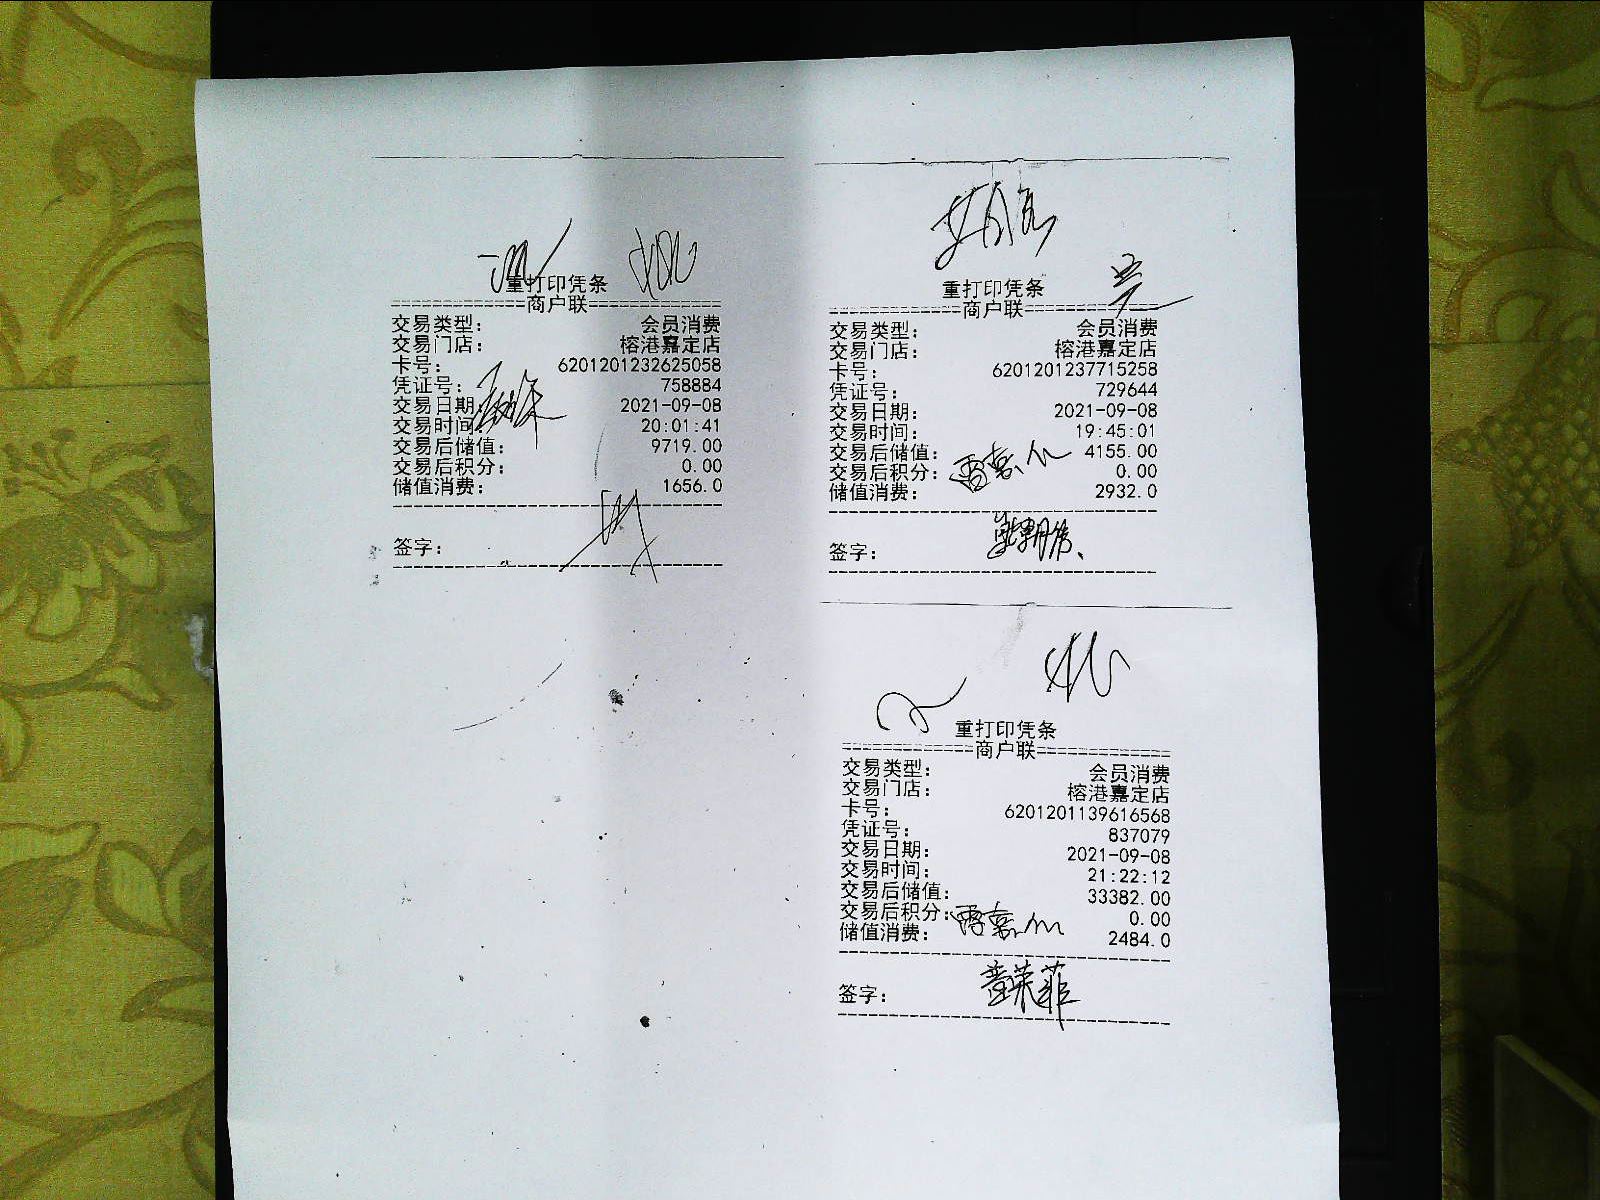 重打印凭条
=============商户联=============
交易类型： 会员消费
交易门店： 榕港嘉定店
卡号： 6201201232625058
凭证号： 758884
交易日期： 2021-09-08
交易时间： 20:01:41
交易后储值： 9719.00
交易后积分： 0.00
储值消费： 1656.0
签字：
重打印凭条
=============商户联=============
交易类型： 会员消费
交易门店： 榕港嘉定店
卡号： 6201201237715258
凭证号： 729644
交易日期： 2021-09-08
交易时间： 19:45:01
交易后储值： 4155.00
交易后积分： 0.00
储值消费： 2932.0
签字：
重打印凭条
=============商户联=============
交易类型： 会员消费
交易门店： 榕港嘉定店
卡号： 6201201139616568
凭证号： 837079
交易日期： 2021-09-08
交易时间： 21:22:12
交易后储值： 33382.00
交易后积分： 0.00
储值消费： 2484.0
签字：